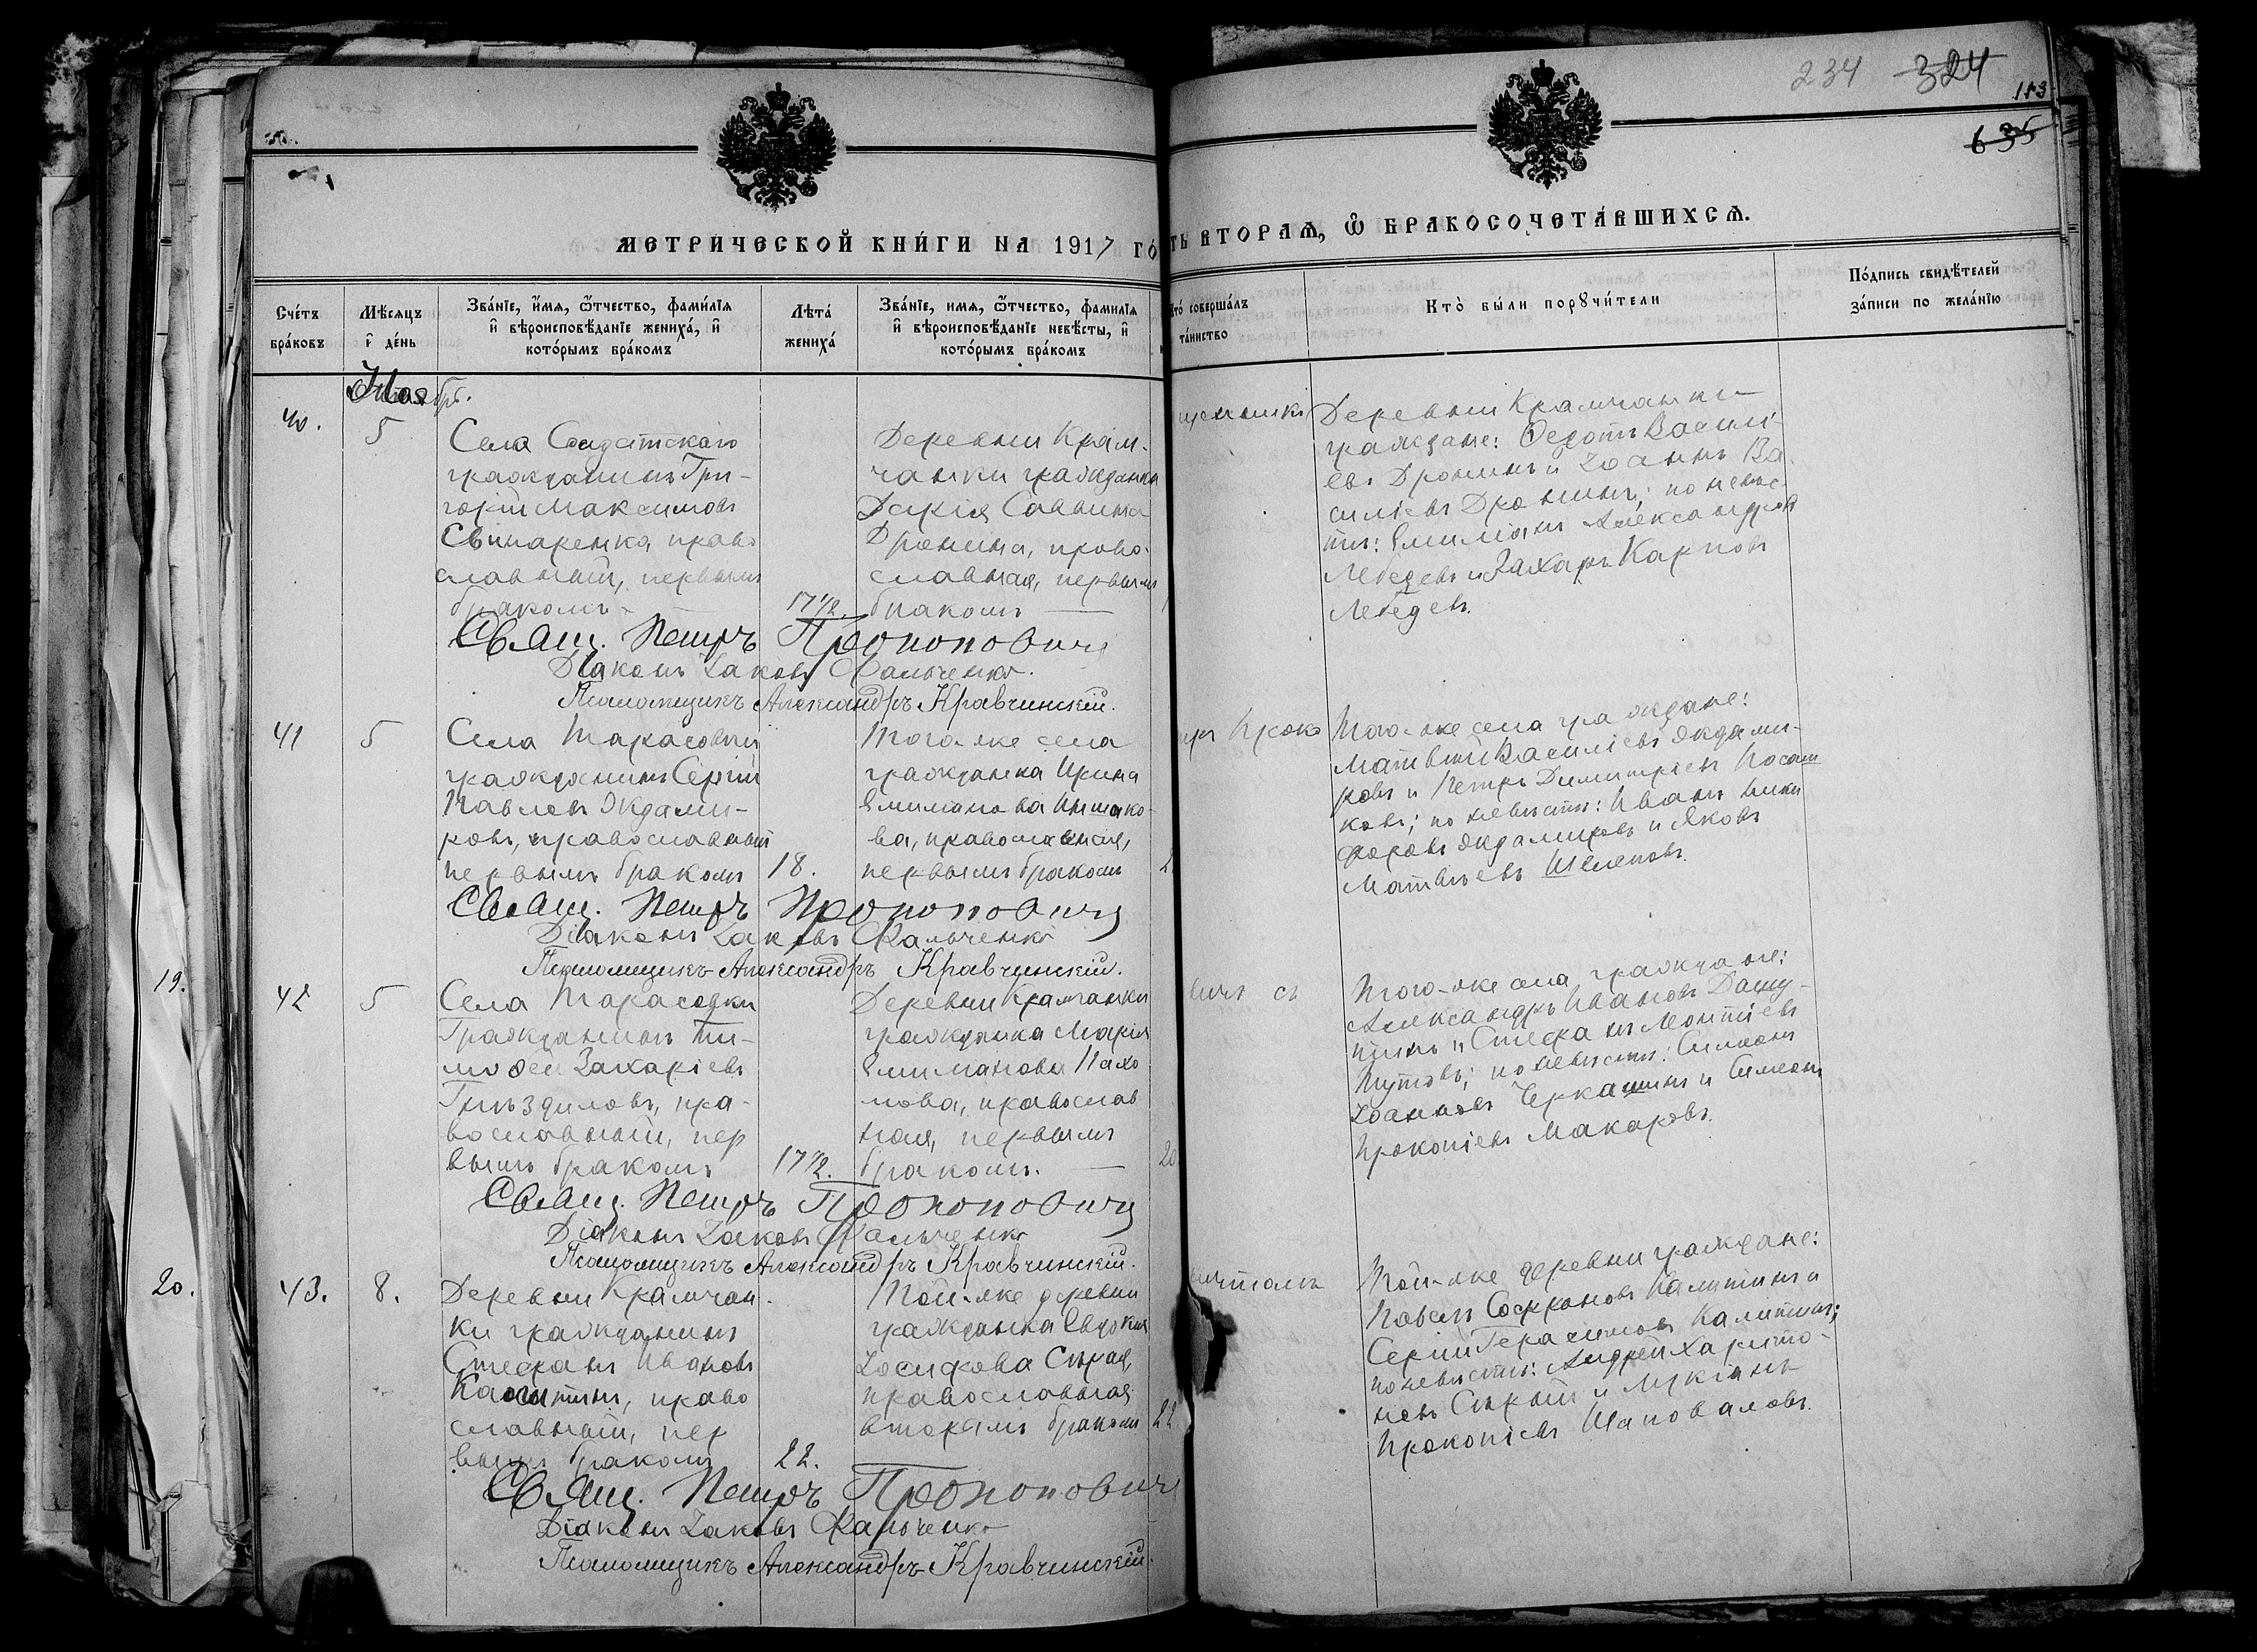 234 324
113
635
МЕТРИЧЕСКОЙ КНИГИ НА 1917 ГО
ТЬ ВТОРАЯ, Ѿ БРАКОСОЧЕТАВШИХСЯ.
Счетъ браковъ
Мѣсяцъ и день
Званіе, имя, ѿтчество, фамилія и вѣроисповѣданіе жениха, и которымъ бракомъ
Лѣта жениха
Званіе, имя, ѿтчество, фамилія и вѣроисповѣданіе невѣсты, и которымъ бракомъ
Кто совершалъ таинство
Кто были поручители
Подпись свидѣтелей записи по желанію
Ноябрь.
40.
5
Села Солдатскаго
гражданинъ Гри-
горій Максимовъ
Свинаренко, право
славный, первымъ
бракомъ
17 1/2.
Деревни Крам-
чанки гражданка
Дарія Саввина
Дронина, право-
славная, первымъ
бракомъ
щенникъ
Деревни Крамчанки
граждане: Ѳедотъ Василі-
евъ Дронинъ и Іоаннъ Ва-
силіевъ Дронинъ; по невѣс-
тѣ: Емиліанъ Александровъ
Лебедевъ и Захаръ Карповъ
Лебедевъ.
Свящ. Петръ Прокопович
Діаконъ Іаковъ Фальченко.
Псаломщикъ Александръ Кравчинскій.
41
5
Села Тарасовки
гражданинъ Сергій
Павловъ Экдами-
ровъ, православный
первымъ бракомъ
18.
Того-же села
гражданка Ирина
Емиліанова
ва, православная,
первымъ бракомъ
2
Того-же села граждане:
Матвѣй Василіевъ Экдами-
ровъ и Петръ Димитріевъ Носат
ковъ; по невѣстѣ: Иванъ Ники
форовъ Экдамировъ и Яковъ
Матвѣевъ Шелеповъ.
Свящ. Петръ Прокопович
Діаконъ Іаковъ Фальченко
Псаломщикъ Александръ Кравчинскій.
19.
42
5
Села Тарасовки
Гражданинъ Ти-
моѳей Захаріевъ
Гнѣздиловъ, пра-
вославный, пер
вымъ бракомъ
17 1/2.
Деревни Крамчанки
гражданка Марія
Емиліанова Пахо
мова, православ
ная, первымъ
бракомъ.
20
вичъ съ
Того-же села граждане:
Александръ Ивановъ
и Стефанъ Леонтіевъ
Путовъ; по невѣстѣ: Симеонъ
Іоанновъ Черкашинъ и Симеонъ
Прокопіевъ Макаровъ.
Свящ. Петръ Прокопович
Діаконъ Іаковъ Фальченко
Псаломщикъ Александръ Кравчинскій.
20.
43.
8.
Деревни Крамчан-
ки гражданинъ
Стефанъ Ивановъ
Калитинъ, право
славный, пер
вымъ бракомъ
22.
Той-же деревни
гражданка Евдокія
Іосифова Сѣрая,
православная
вторымъ бракомъ
22
Той-же деревни граждане:
Павелъ Софроновъ Калитинъ и
Сергій Герасимовъ Калитинъ;
по невѣстѣ: Андрей Харито-
новъ Сѣрый и Лукіанъ
Прокопіевъ Шаповаловъ.
Свящ. Петръ Прокопович
Діаконъ Іаковъ Фальченко
Псаломщикъ Александръ Кравчинскій.